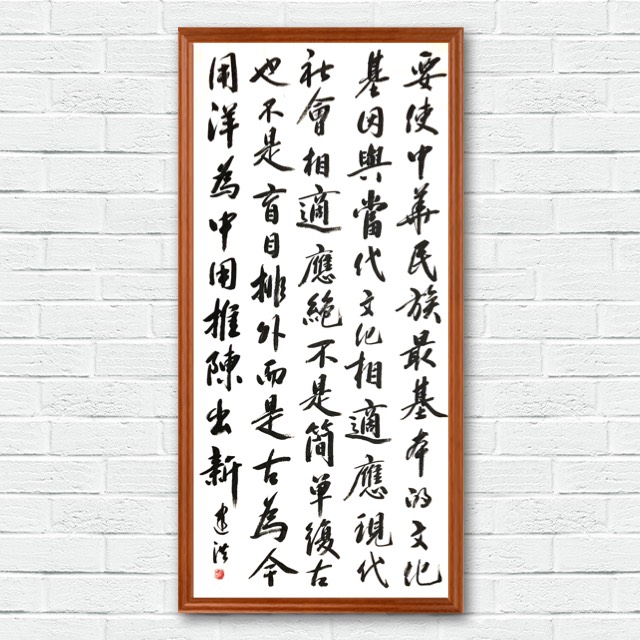 要使中華民族最基本的文化
基因與當代文化相適應現代
社會相適應絕不是簡單復古
也不是盲目排外而是古為今
用洋為中用推陳出新